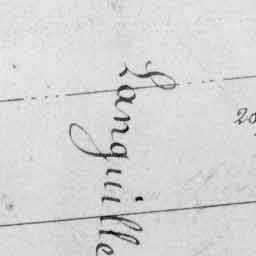 Languille
20